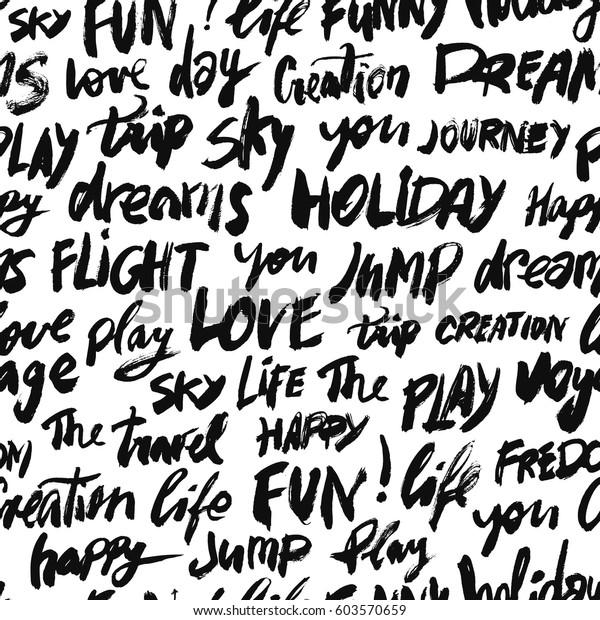 sky FUN! life FUNNY holiday
love day Creation DREAM
PLAY trip sky you JOURNEY
dreams HOLIDAY Happ
FLIGHT you JUMP dream
love play LOVE trip CREATION
age SKY LIFE The PLAY voya
The travel HAPPY
Creation life FUN! life FREDO
you
happy Jump Play
FUNNY holiday
shutterstock
www.shutterstock.com · 603570659